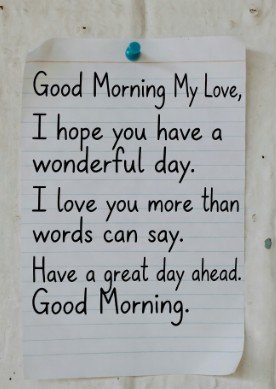 Good Morning My Love,
I hope you have a
wonderful day.
I love you more than
words can say.
Have a great day ahead.
Good Morning.